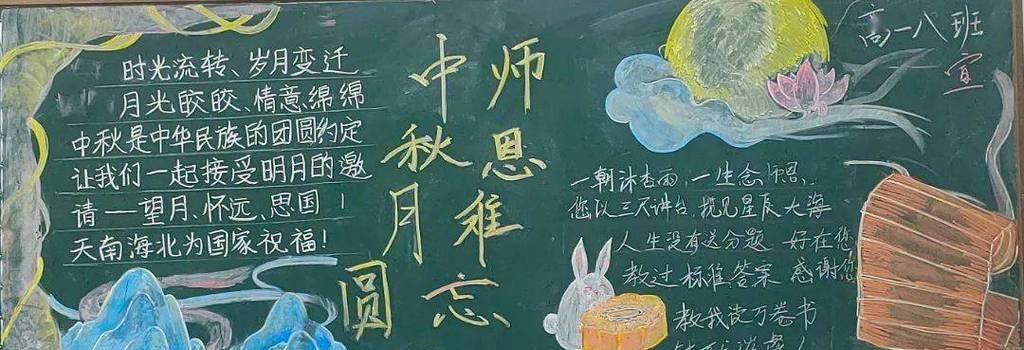 时光流转、岁月变迁
月光皎皎、情意绵绵
中秋是中华民族的团圆约定
让我们一起接受明月的邀
请——望月、怀远、思国！
天南海北为国家祝福！
中秋月圆
师恩难忘
高一八班
宣
一朝沐杏雨，一生念师恩，
您以三尺讲台，揽见星辰大海
人生没有送分题 好在您
教过标准答案 感谢您
教我读万卷书